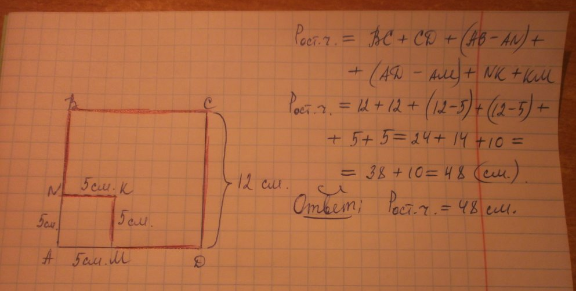 Pост.ч. = BC + CD + (AB - AN) +
+ (AD - AM) + NK + KM
Pост.ч. = 12 + 12 + (12-5) + (12-5) +
+ 5 + 5 = 24 + 14 + 10 =
= 38 + 10 = 48 (см.)
Ответ: Pост.ч. = 48 см.
B C
N 5см. K
12 см.
5см. 5см.
A 5см. M D